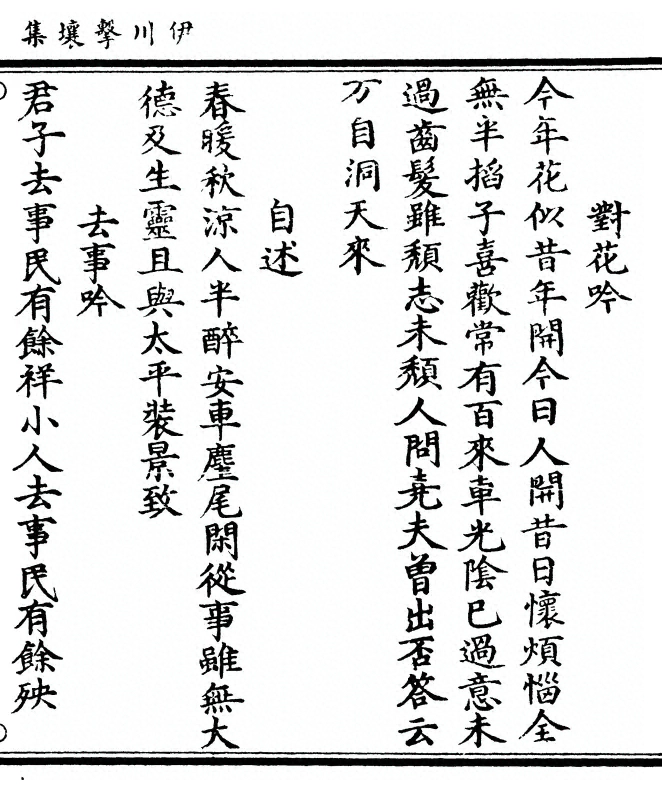 伊川擊壤集
對花吟
今年花似昔年開今日人開昔日懷煩惱全
無半掐子喜歡常有百來車光陰已過意未
過齒髮雖頹志未頹人問堯夫曾出否答云
方自洞天來
自述
春暖秋涼人半醉安車麈尾閑從事雖無大
德及生靈且與太平裝景致
去事吟
君子去事民有餘祥小人去事民有餘殃